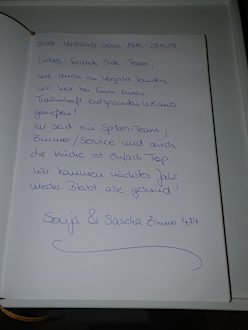 2019 Urlaub vom 15.10 - 29.10.19
Liebes Grande Side-Team,
wie auch im Vorjahr konnten
wir hier bei Euch einen
Traumhaft entspannten Urlaub
genießen!
Ihr seid ein Spitzen-Team,
Zimmer/Service und auch
die Küche ist einfach Top.
Wir kommen nächstes Jahr
wieder. Bleibt alle gesund!
Sonja & Sascha Zimmer 414